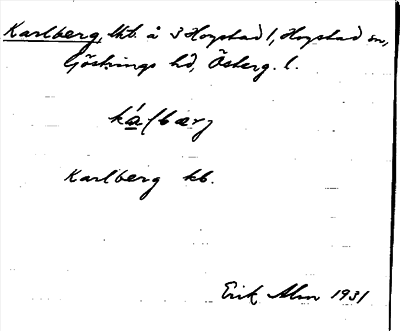 Karlberg, lht. å 3 Hogstad 1, Hogstad sn,
Göstrings hd, Österg. l.
Karlberg kb.
Erik Alm 1931